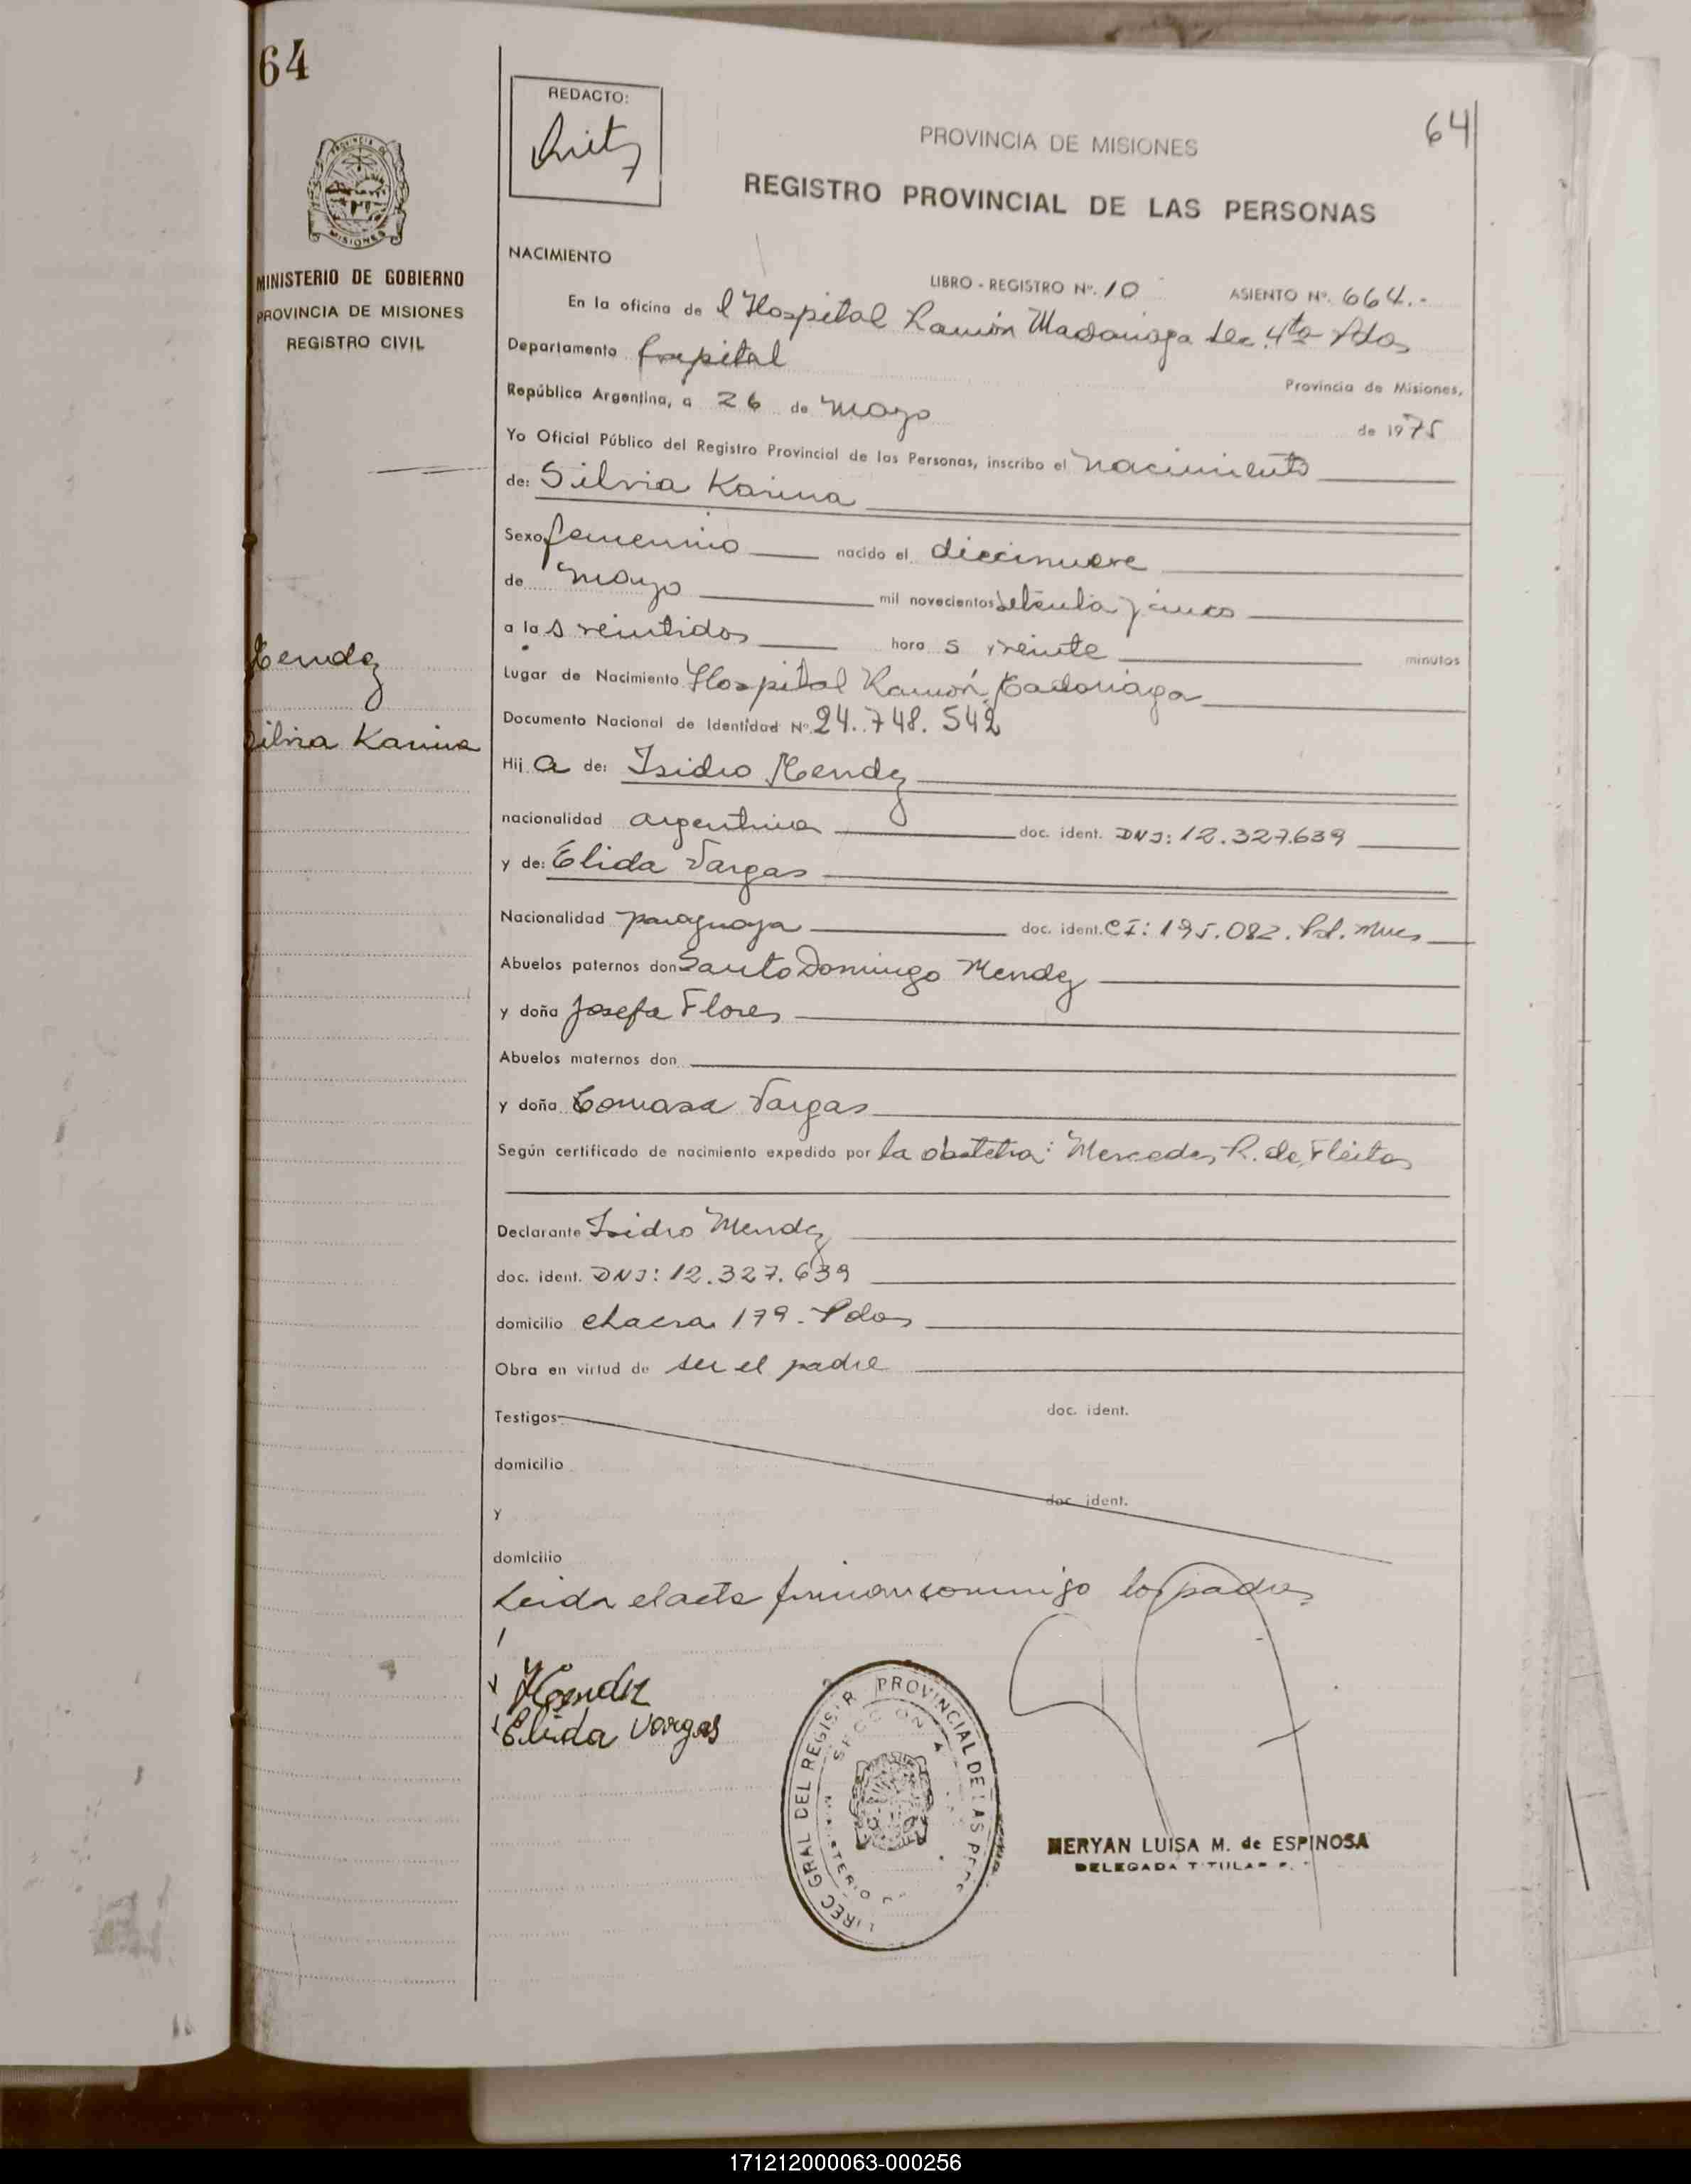 64
REDACTO:
64
PROVINCIA DE MISIONES
REGISTRO PROVINCIAL DE LAS PERSONAS
PROVINCIA DE
MISIONES
MINISTERIO DE GOBIERNO
PROVINCIA DE MISIONES
REGISTRO CIVIL
NACIMIENTO
LIBRO - REGISTRO Nº. 10 ASIENTO Nº. 664.-
En la oficina de l Hospital Ramón Madariaga Sec. 4ta Pdas
Departamento Capital
Provincia de Misiones,
República Argentina, a 26 de Mayo de 1975
Yo Oficial Público del Registro Provincial de las Personas, inscribo el nacimiento
de: Silvia Karina
Sexo femenino nacido el diecinueve
de mayo mil novecientos setenta y cinco
a las veintidos hora s veinte minutos
Mendez
Silvia Karina
Lugar de Nacimiento Hospital Ramón Madariaga
Documento Nacional de Identidad Nº 24.748.542
Hij a de: Isidro Mendez
nacionalidad argentina doc. ident. DNI: 12.327.639
y de: Elida Vargas
Nacionalidad paraguaya doc. ident. CI: 195.082. Pol. Mnes
Abuelos paternos don Santo Domingo Mendez
y doña Josefa Flores
Abuelos maternos don
y doña Tomasa Vargas
Según certificado de nacimiento expedido por la obstetra: Mercedes R. de Fleitas
Declarante Isidro Mendez
doc. ident. DNI: 12.327.639
domicilio chacra 179 - Pdas
Obra en virtud de ser el padre
Testigos doc. ident.
domicilio
y doc. ident.
domicilio
Leida el acta firman conmigo los padres
Mendez
Elida Vargas
GRAL DEL REGISTR PROVINCIAL DE LAS
MERYAN LUISA M. de ESPINOSA
DELEGADA TITULAR
171212000063-000256